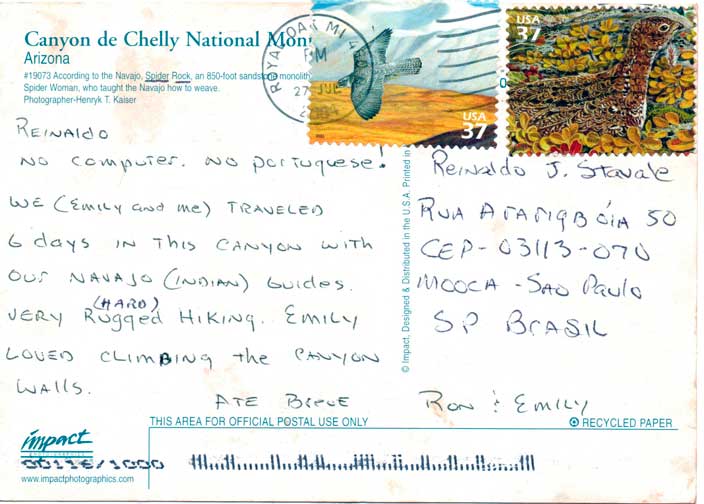 Canyon de Chelly National Mon
Arizona
#19073 According to the Navajo, Spider Rock, an 850-foot sandstone monolith,
Spider Woman, who taught the Navajo how to weave.
Photographer-Henryk T. Kaiser
ROYAL OAK MI
PM
27 JUL
USA
37
USA
37
REINALDO
NO COMPUTER. NO PORTUGUESE!
WE (EMILY and me) TRAVELED
6 days IN THIS CANYON WITH
OUR NAVAJO (INDIAN) GUIDES.
(HARD)
VERY RUGGED HIKING. EMILY
LOVED CLIMBING the CANYON
WALLS.
ATE BREVE
RON & EMILY
Reinaldo J. Stavale
RUA ARARIGBÓIA 50
CEP-03113-070
MOOCA - SAO PAULO
SP BRASIL
© Impact, Designed & Distributed in the U.S.A. Printed in
THIS AREA FOR OFFICIAL POSTAL USE ONLY
RECYCLED PAPER
impact
00116/1000
www.impactphotographics.com